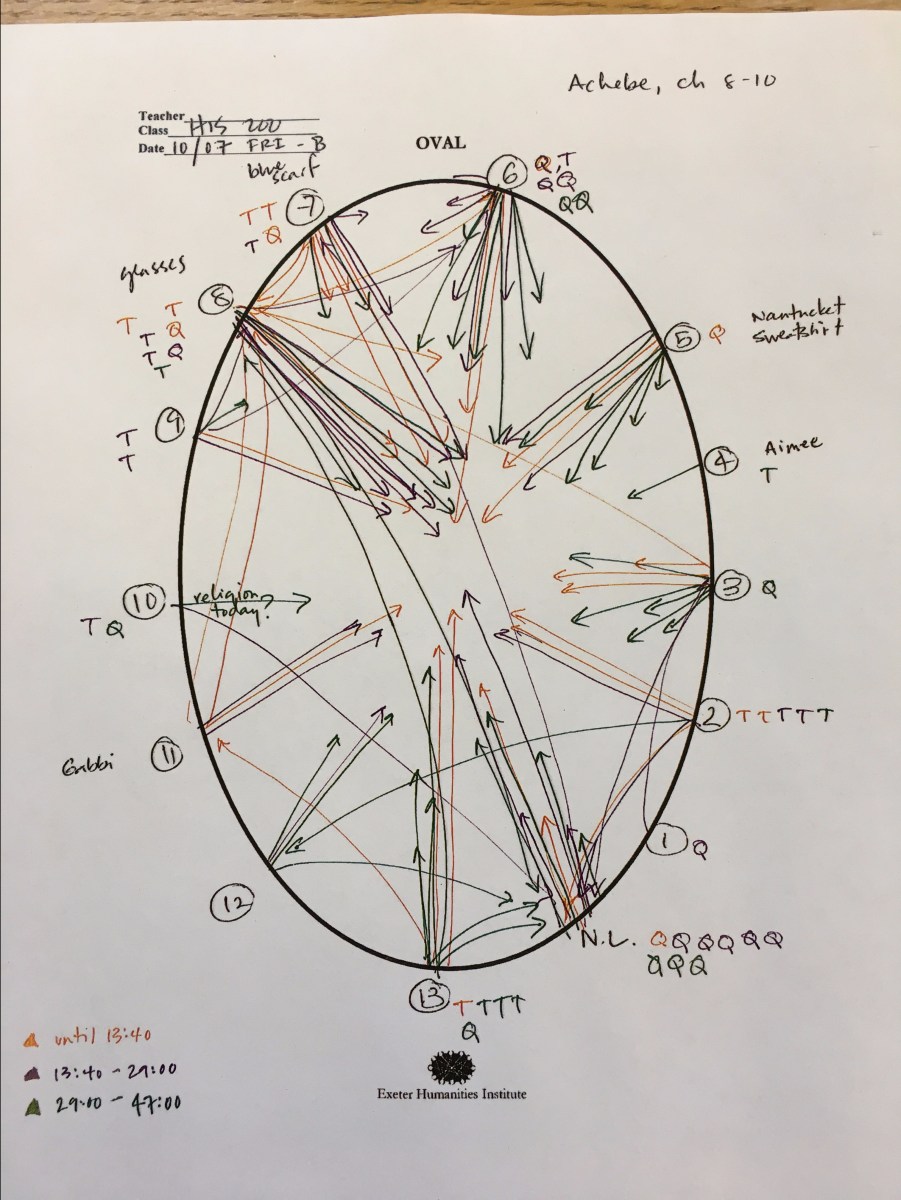 Achebe, ch 8-10
Teacher
Class HIS 200
Date 10/07 FRI - B
OVAL
blue scarf
7
T T
T Q
6
Q, T
Q Q
Q Q
glasses
8
T T
T Q
T Q
T
5 Q
Nantucket
sweatshirt
9
T
T
4
Aimee
T
3 Q
10
religion
today?
T Q
2 T T T T T
Gabbi 11
1 Q
12
N.L. Q Q Q Q Q Q
Q Q Q
13 T T T T
Q
until 13:40
13:40 - 29:00
29:00 - 47:00
Exeter Humanities Institute